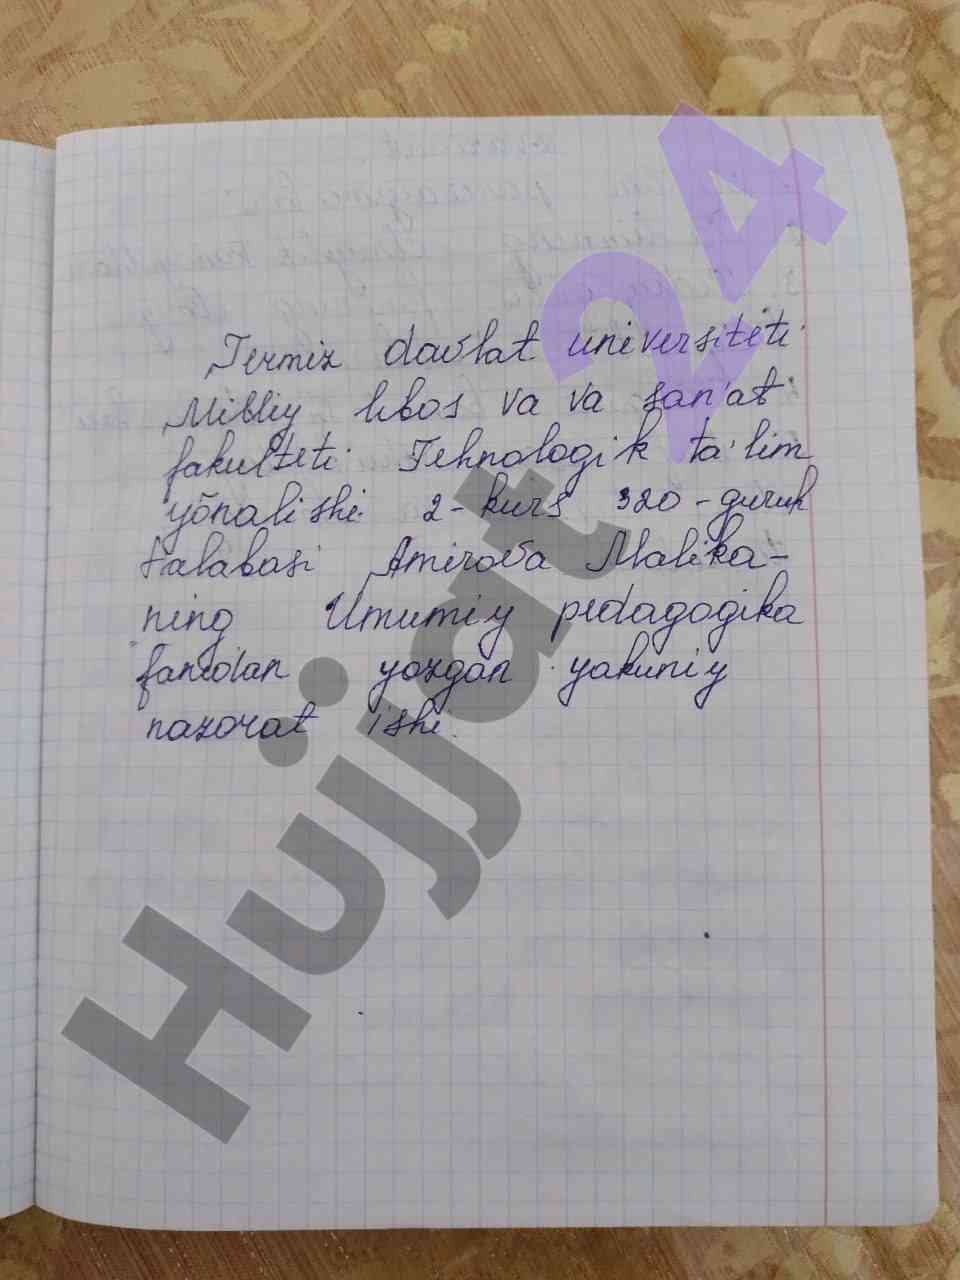 Termiz davlat universiteti
Milliy libos va va san'at
fakulteti Tehnologik ta'lim
yõnalishi 2-kurs 320-guruh
talabasi Amirova Malika-
ning Umumiy pedagogika
fanidan yozgan yakuniy
nazorat ishi.
Hujjat 24